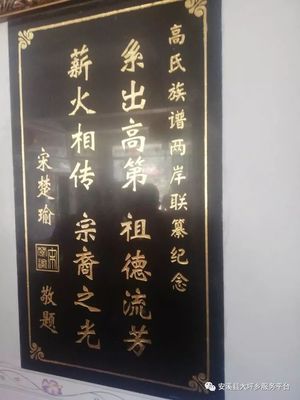 高氏族谱两岸联纂纪念
系出高第 祖德流芳
薪火相传 宗裔之光
宋楚瑜
敬题
安溪县大坪乡服务平台